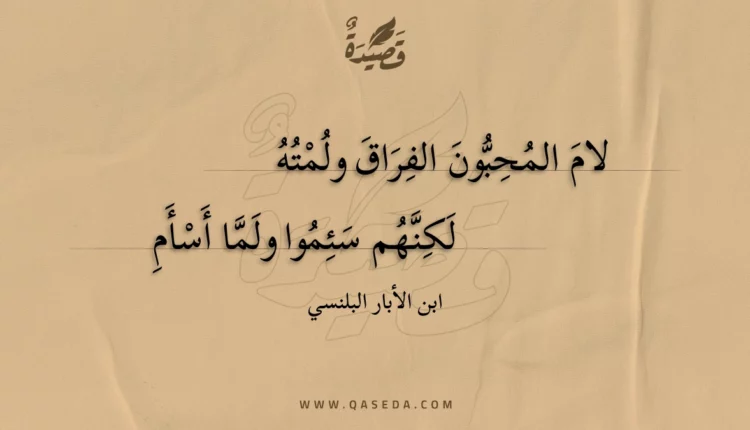 قَصِيدَةٌ
لامَ المُحِبُّونَ الفِرَاقَ ولُمْتُهُ
لَكِنَّهُم سَئِمُوا ولَمَّا أَسْأَمِ
ابن الأبار البلنسي
WWW.QASEDA.COM